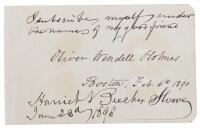 I subscribe myself under
the names of my good friend
Oliver Wendell Holmes
Boston, Feb. 6th 1890
Harriet Beecher Stowe
June 23d 1890